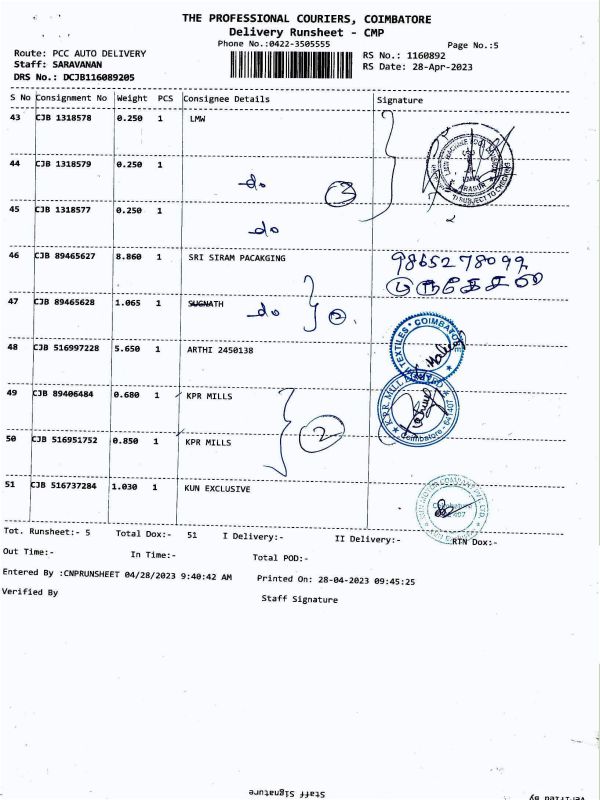 THE PROFESSIONAL COURIERS, COIMBATORE
Delivery Runsheet - CMP
Phone No.:0422-3505555
Page No.:5
Route: PCC AUTO DELIVERY
RS No.: 1160892
Staff: SARAVANAN
RS Date: 28-Apr-2023
DRS No.: DCJB116089205
S No Consignment No Weight PCS Consignee Details Signature
43 CJB 1318578 0.250 1 LMW
44 CJB 1318579 0.250 1 do 3
45 CJB 1318577 0.250 1 do
46 CJB 89465627 8.860 1 SRI SIRAM PACAKGING 9865278099
47 CJB 89465628 1.065 1 SUGNATH do 2
48 CJB 516997228 5.650 1 ARTHI 2450138
TEXTILES * COIMBATORE
49 CJB 89406484 0.680 1 KPR MILLS
K.P.R. MILL
Coimbatore - 641407
50 CJB 516951752 0.850 1 KPR MILLS 2
51 CJB 516737284 1.030 1 KUN EXCLUSIVE
KUN MOTOR COMPANY PVT LTD.
Coimbatore
Tot. Runsheet:- 5 Total Dox:- 51 I Delivery:- II Delivery:- RTN Dox:-
Out Time:- In Time:- Total POD:-
Entered By :CNPRUNSHEET 04/28/2023 9:40:42 AM Printed On: 28-04-2023 09:45:25
Verified By Staff Signature
Staff Signature Verified By